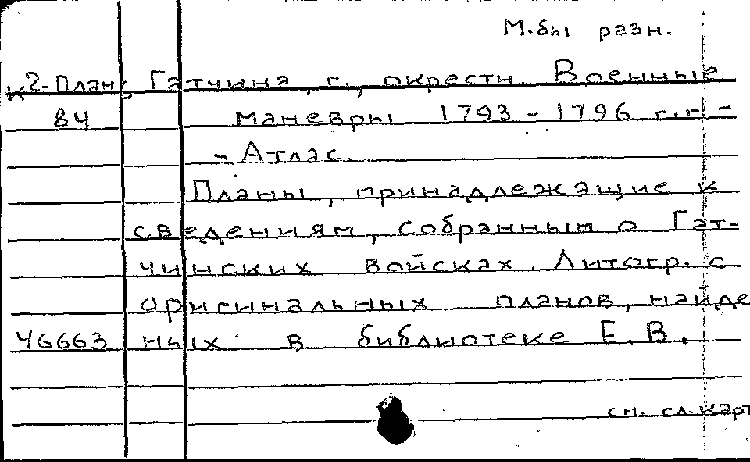 М-бы разн.
к2-План, Гатчина, г., окрестн. Военные
84 маневры 1793-1796 г.г.-
- Атлас.
Планы, принадлежащие к
сведениям, собранным о Гат-
чинских войсках. Литогр. с
оригинальных планов, найде
46663 ных в библиотеке Е.В.
см. сл. карт